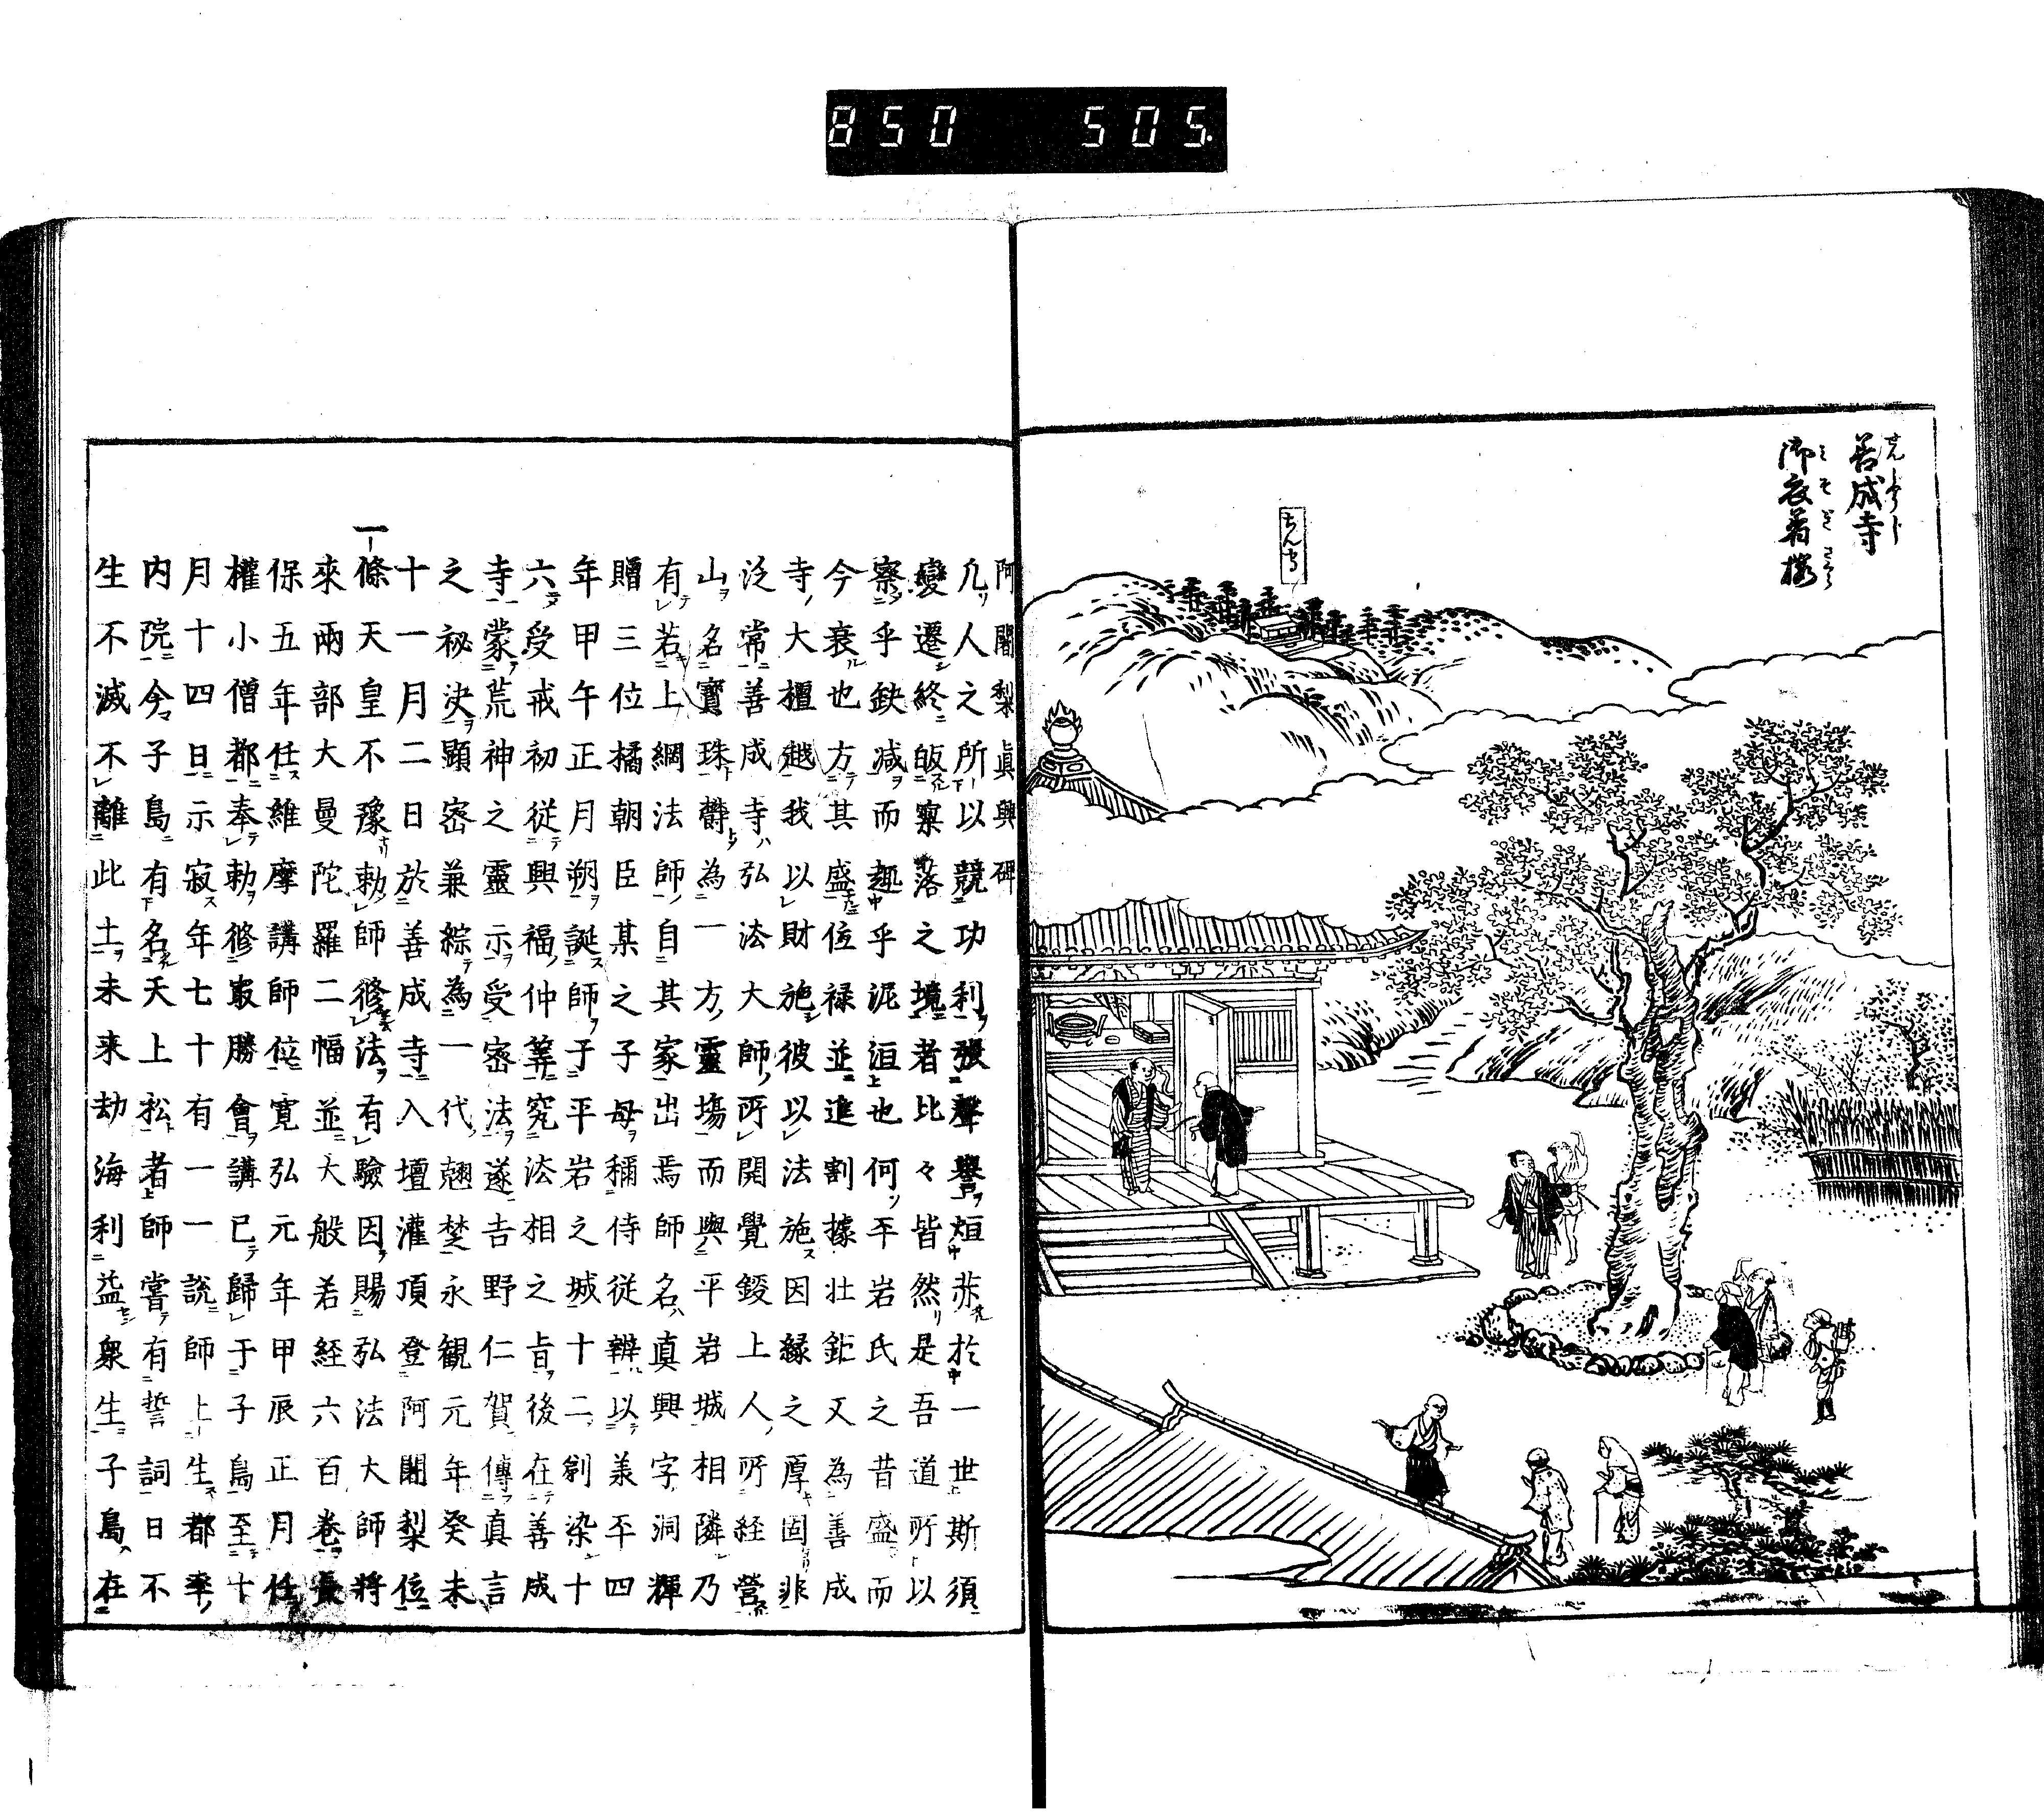 850 505.
善成寺
御衣着櫻
阿闍梨眞興碑
凡人之所以競功利張聲譽烜於一世斯須
變遷終皈寞落之境者比々皆然是吾道所以
察乎缺減而趣乎泥洹也何平岩氏之昔盛而
今衰也方其盛位禄並進割據壮鉅又為善成
寺大檀越我以財施彼以法施因縁之厚固非
泛常善成寺弘法大師所開覺鑁上人所経營
山名寶珠欝為一方靈場而與平岩城相隣乃
有若上綱法師自其家出焉師名真興字洞輝
贈三位橘朝臣某之子母稱侍従辨以義平四
年甲午正月朔誕師于平岩之城十二創染十
六受戒初従興福仲筭究法相之旨後在善成
寺蒙荒神之靈示受密法遂吉野仁賀傳真言
之祕決顯密兼綜為一代翹楚永観元年癸未
十一月二日於善成寺入壇灌頂登阿闍梨位
一條天皇不豫勅師修法有驗因賜弘法大師将
來兩部大曼陀羅二幅並大般若経六百巻長
保五年任維摩講師位寛弘元年甲辰正月任
權小僧都奉勅修最勝會講已歸于子島至十
月十四日示寂年七十有一一説師上生都率
内院今子島有名天上松者師嘗有誓詞曰不
生不滅不離此土未来劫海利益衆生子島在